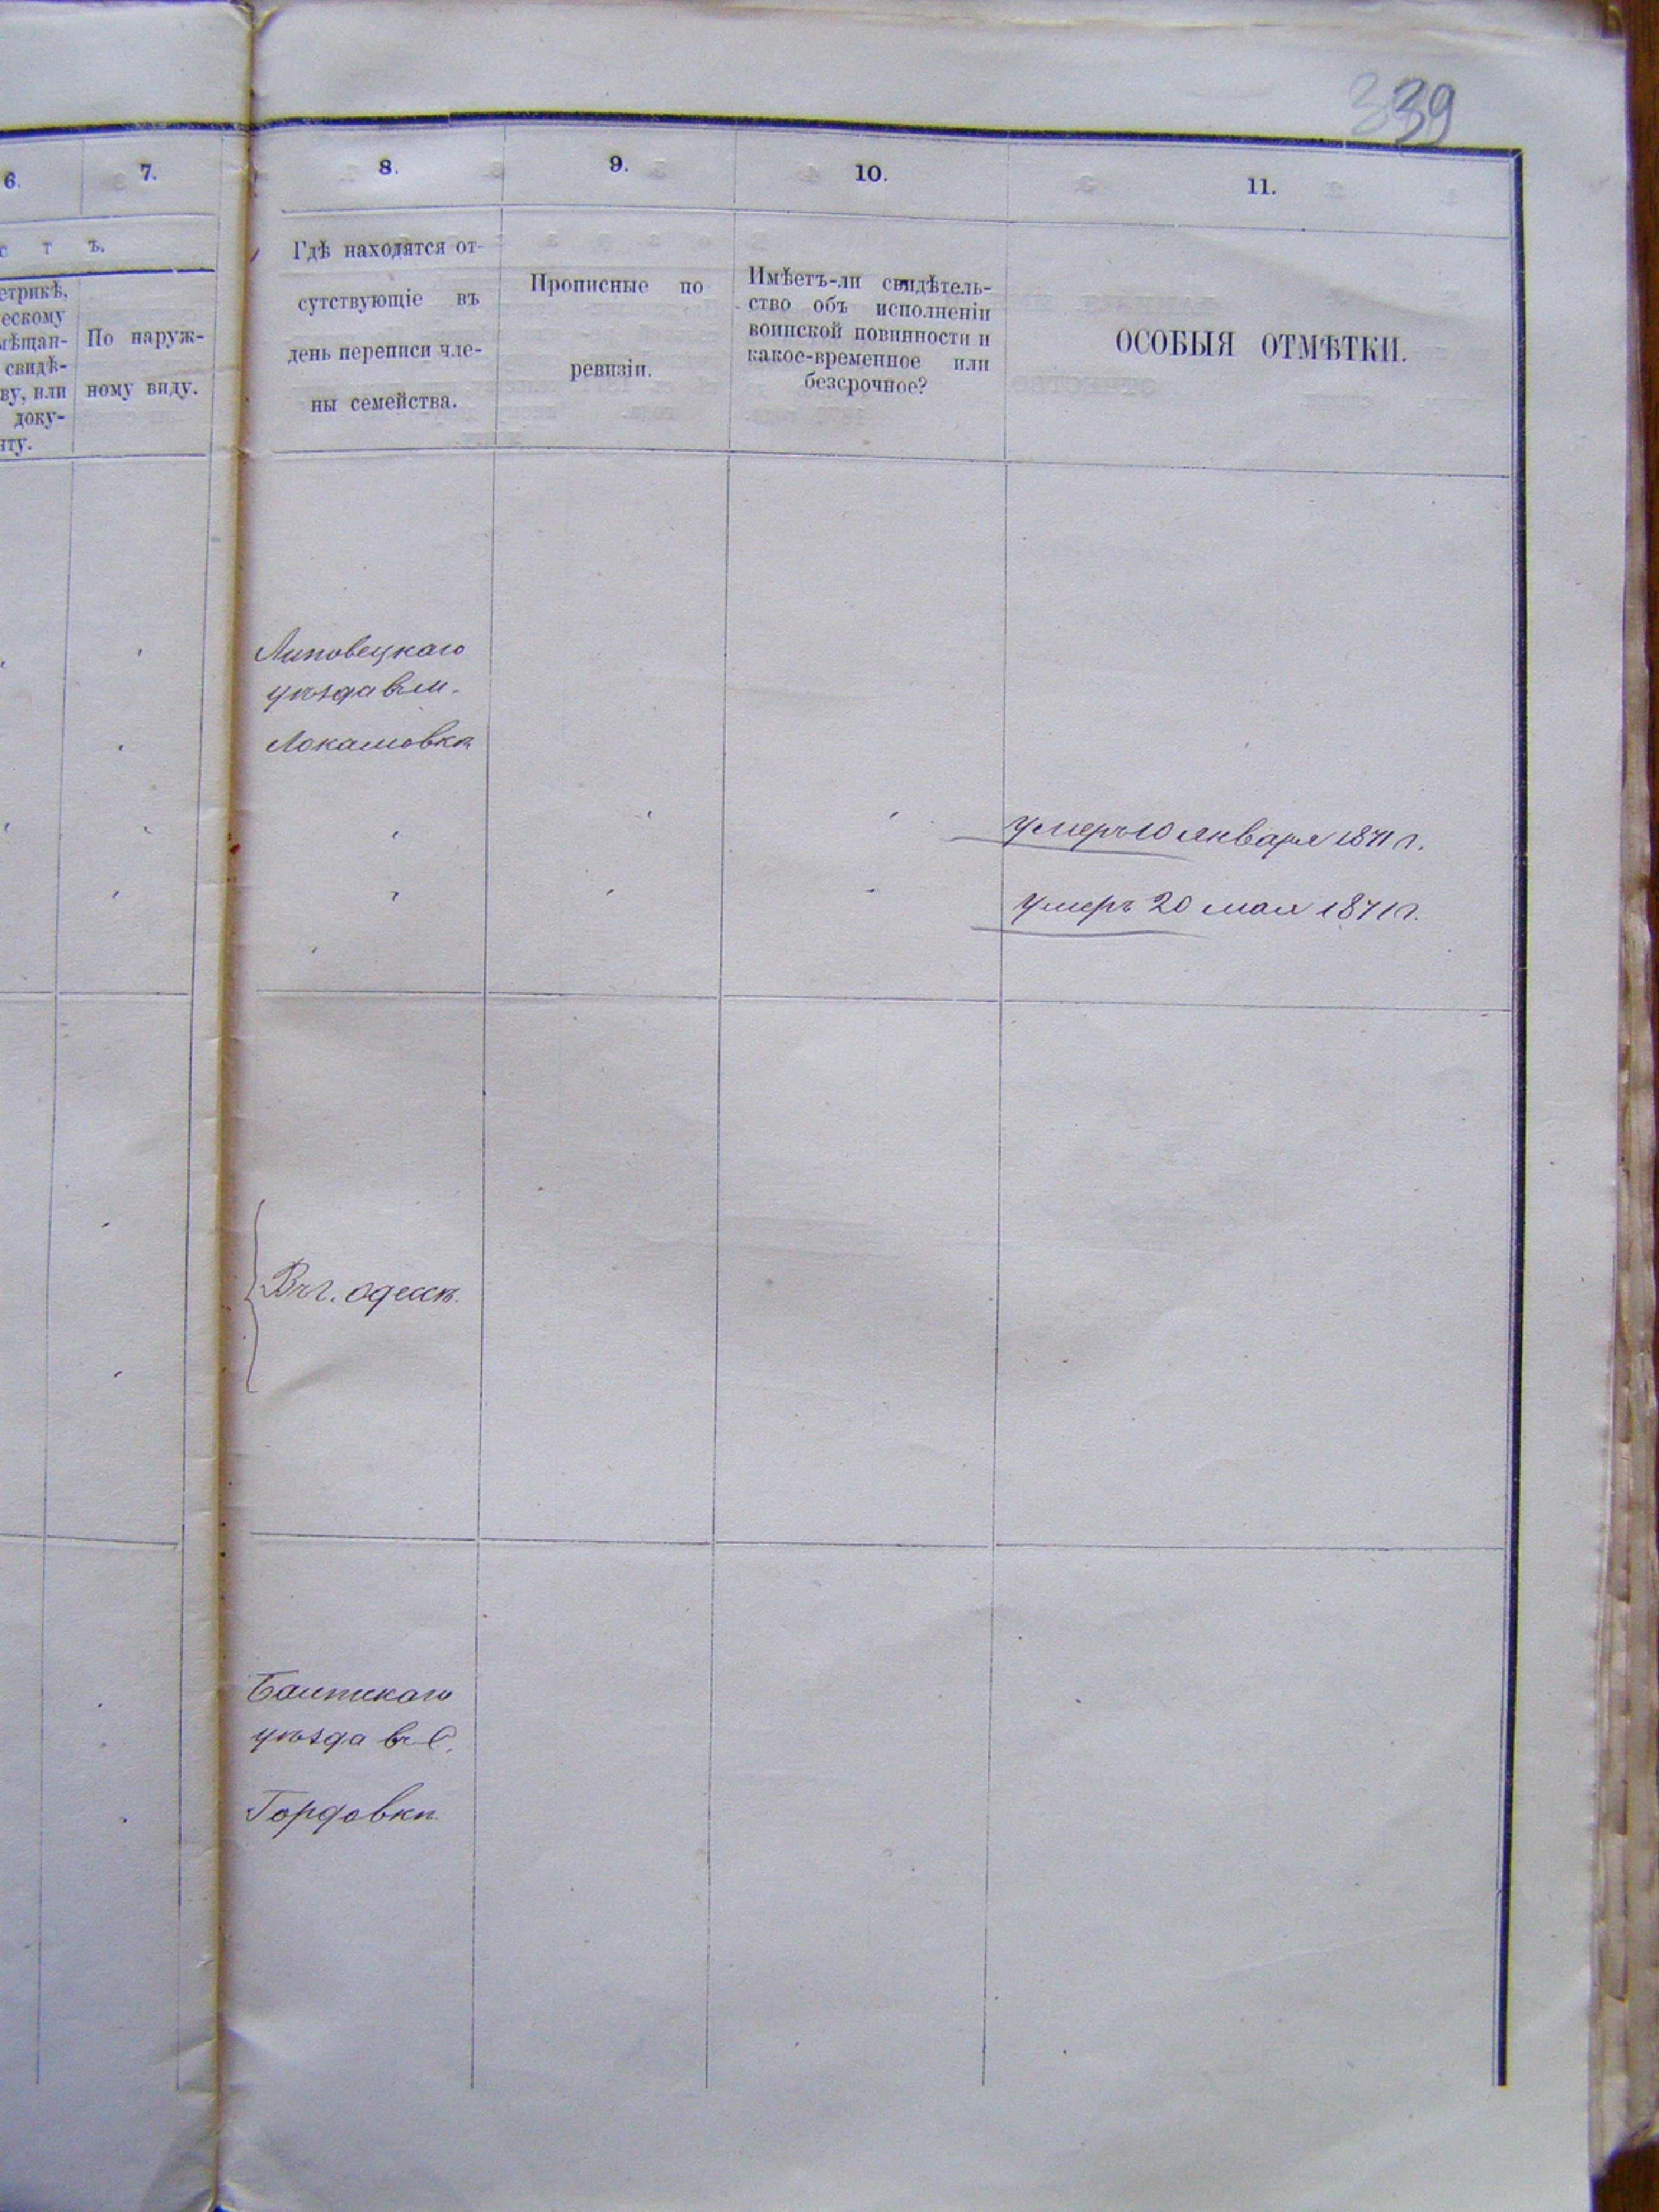 339
6.
7.
8.
9.
10.
11.
с т ъ.
етрикѣ,
ческому
мѣщан-
свидѣ-
ву, или
доку-
нту.
По наруж-
ному виду.
Гдѣ находятся от-
сутствующіе въ
день переписи чле-
ны семейства.
Прописные по
ревизіи.
Имѣетъ-ли свидѣтель-
ство объ исполненіи
воинской повинности и
какое-временное или
безсрочное?
ОСОБЫЯ ОТМѢТКИ.
Липовецкаго
уѣзда въ м.
умеръ 10 января 1871 г.
умеръ 20 мая 1871 г.
Въ г. Одессѣ.
Балтскаго
уѣзда въ С.
Гордовкѣ